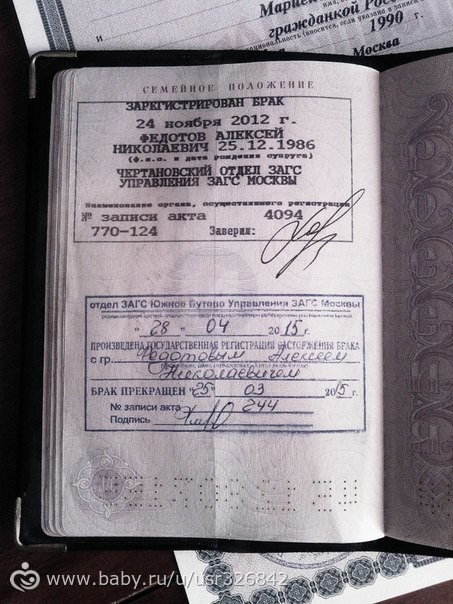 Мариен
гражданкой Рос
1990 г.
Москва
СЕМЕЙНОЕ ПОЛОЖЕНИЕ
ЗАРЕГИСТРИРОВАН БРАК
24 ноября 2012 г.
ФЕДОТОВ АЛЕКСЕЙ
НИКОЛАЕВИЧ 25.12.1986
(ф.и.о. и дата рождения супруга)
ЧЕРТАНОВСКИЙ ОТДЕЛ ЗАГС
УПРАВЛЕНИЯ ЗАГС МОСКВЫ
Наименование органа, осуществившего регистрацию
№ записи акта 4094
770-124 Заверил:
отдел ЗАГС Южное Бутово Управления ЗАГС Москвы
"28" 04 2015 г.
ПРОИЗВЕДЕНА ГОСУДАРСТВЕННАЯ РЕГИСТРАЦИЯ РАСТОРЖЕНИЯ БРАКА
с гр. Федотовым Алексеем
Николаевичем
БРАК ПРЕКРАЩЕН "25" 03 2015 г.
№ записи акта 244
Подпись
www.baby.ru/u/usr326842